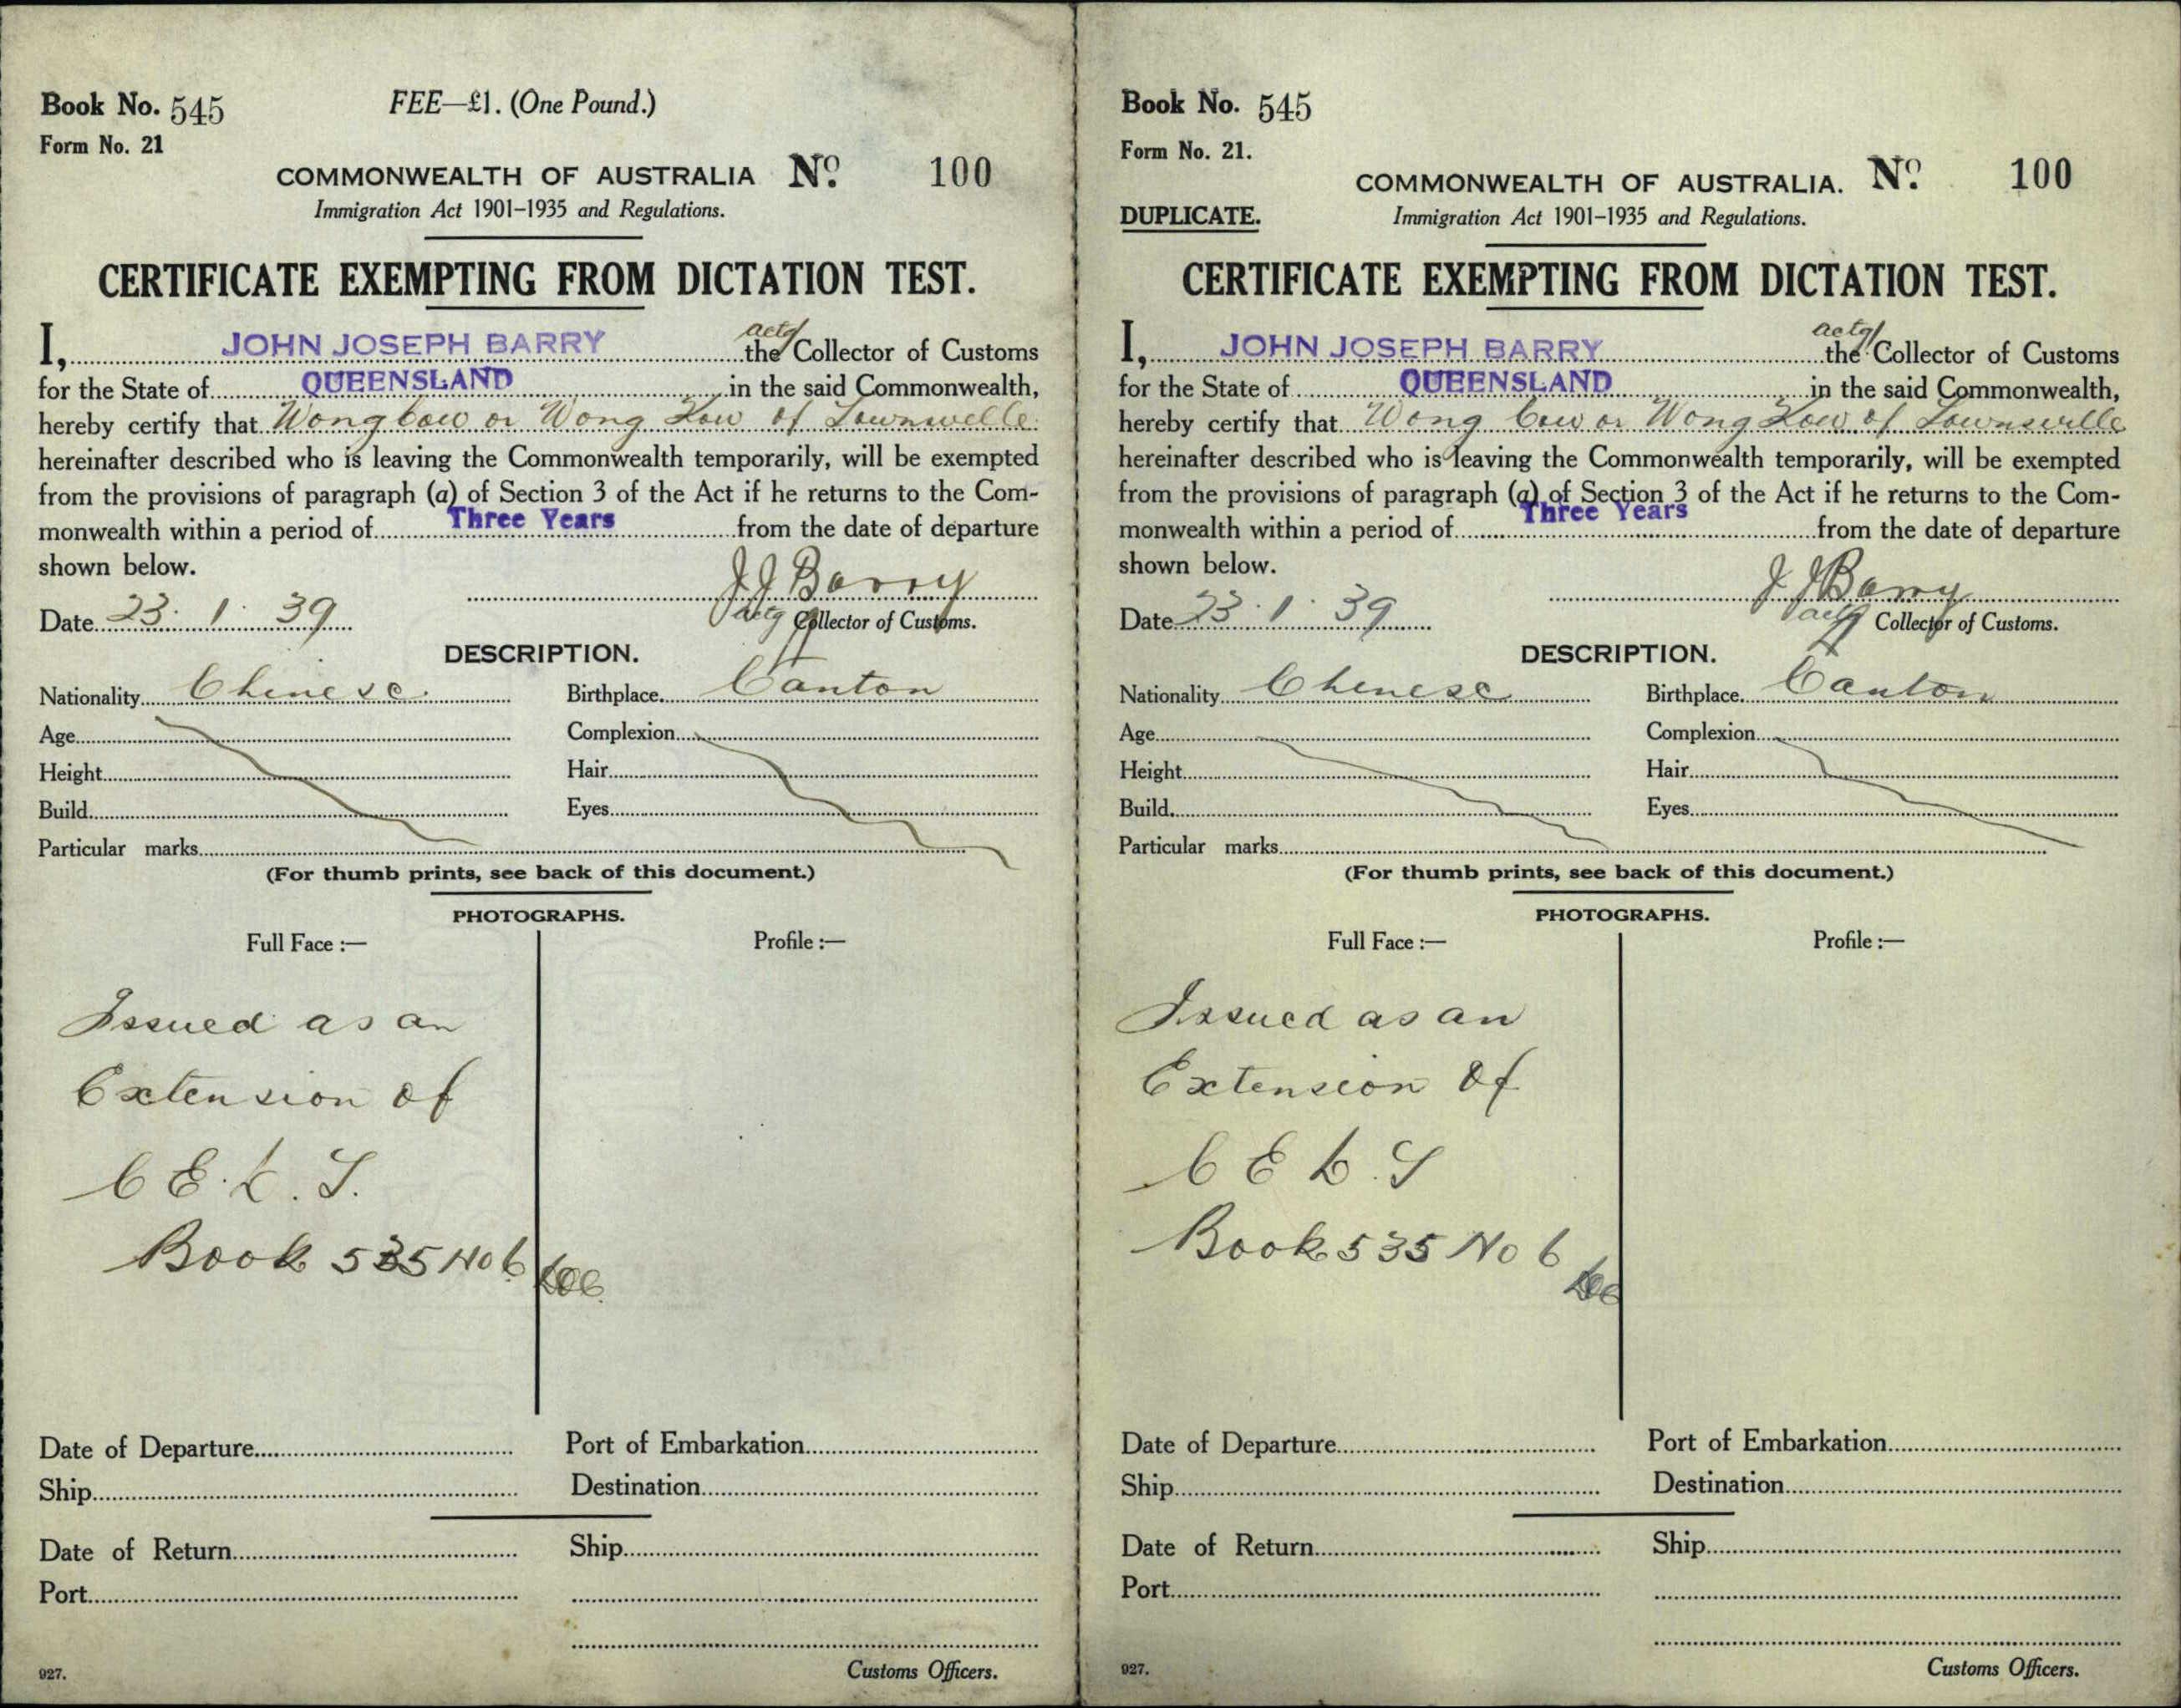 Book No. 545
FEE—£1. (One Pound.)
Form No. 21
COMMONWEALTH OF AUSTRALIA No. 100
Immigration Act 1901–1935 and Regulations.
CERTIFICATE EXEMPTING FROM DICTATION TEST.
I, JOHN JOSEPH BARRY the actg Collector of Customs
for the State of QUEENSLAND in the said Commonwealth,
hereby certify that Wong Cow or Wong Kow of Townsville
hereinafter described who is leaving the Commonwealth temporarily, will be exempted
from the provisions of paragraph (a) of Section 3 of the Act if he returns to the Com-
monwealth within a period of Three Years from the date of departure
shown below.
J J Barry
Date 23. 1. 39
actg Collector of Customs.
DESCRIPTION.
Nationality Chinese. Birthplace Canton
Age Complexion
Height Hair
Build Eyes
Particular marks
(For thumb prints, see back of this document.)
PHOTOGRAPHS.
Full Face :— Profile :—
Issued as an
Extension of
C E. D. T.
Book 535 No 6
Date of Departure Port of Embarkation
Ship Destination
Date of Return Ship
Port
927. Customs Officers.
Book No. 545
Form No. 21.
COMMONWEALTH OF AUSTRALIA. No. 100
DUPLICATE. Immigration Act 1901–1935 and Regulations.
CERTIFICATE EXEMPTING FROM DICTATION TEST.
I, JOHN JOSEPH BARRY the actg Collector of Customs
for the State of QUEENSLAND in the said Commonwealth,
hereby certify that Wong Cow or Wong Kow of Townsville
hereinafter described who is leaving the Commonwealth temporarily, will be exempted
from the provisions of paragraph (a) of Section 3 of the Act if he returns to the Com-
monwealth within a period of Three Years from the date of departure
shown below.
J J Barry
Date 23. 1. 39
actg Collector of Customs.
DESCRIPTION.
Nationality Chinese Birthplace Canton
Age Complexion
Height Hair
Build Eyes
Particular marks
(For thumb prints, see back of this document.)
PHOTOGRAPHS.
Full Face :— Profile :—
Issued as an
Extension of
C E D. T
Book 535 No 6
Date of Departure Port of Embarkation
Ship Destination
Date of Return Ship
Port
927. Customs Officers.